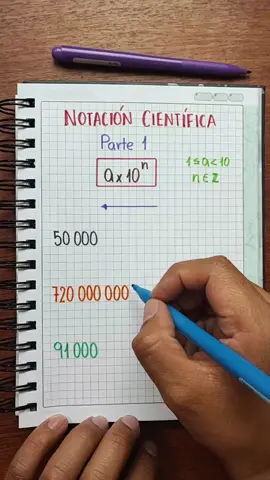 NOTACIÓN CIENTÍFICA
Parte 1
a x 10ⁿ
1 ≤ a < 10
n ∈ Z
50 000
720 000 000
91 000